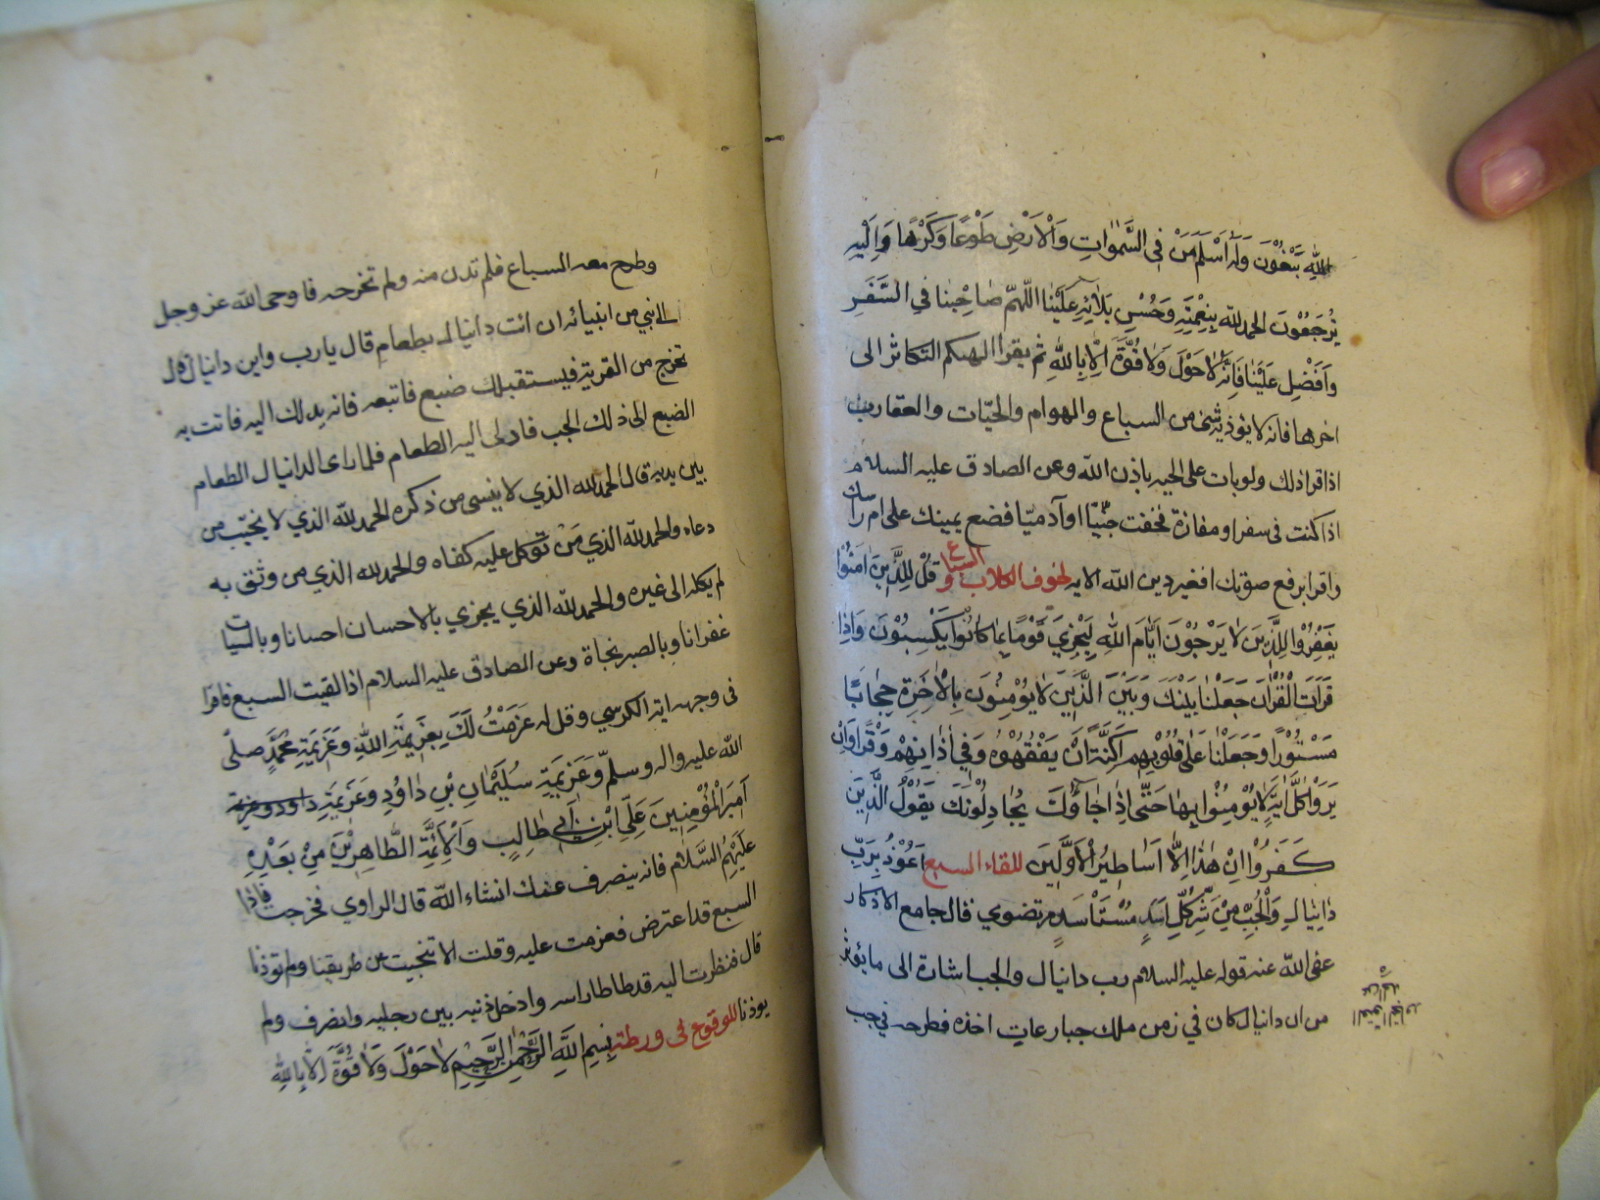 اللهِ يَبْغُونَ وَلَهُ اَسْلَمَ مَنْ فِى السَّمٰوَاتِ وَالْاَرْضِ طَوْعًا وَكَرْهًا وَاِلَيْهِ
يُرْجَعُونَ الحمد لله بِنِعْمَتِهِ وَحُسْنِ بَلَائِهِ عَلَيْنَا اللّهمّ صَاحِبْنَا فِى السَّفَرِ
وَاَفْضِلْ عَلَيْنَا فَاِنَّهُ لَاحَوْلَ وَلَا قُوَّةَ اِلَّا بِاللهِ ثم يقرا الهيكم التكاثر الى
اخرها فانه لا يوذيه شئ من السباع والهوام والحيّات والعقارب
اذا قرا ذلك ولو بات على الحيه باذن الله وعن الصادق عليه السلام
اذا كنت فى سفر او مفازة فخفت جنّيّا او آدميّا فضع يمينك على ام راسك
واقرا برفع صوتك افغير دين الله الايه لخوف الكلاب و السباع قُلْ لِلَّذِينَ اٰمَنُوْا
يَغْفِرُوْا لِلَّذِينَ لَا يَرْجُوْنَ اَيَّامَ اللهِ لِيَجْزِىَ قَوْمًا بِمَا كَانُوْا يَكْسِبُوْنَ وَاِذَا
قَرَاْتَ الْقُرْاٰنَ جَعَلْنَا بَيْنَكَ وَبَيْنَ الَّذِينَ لَا يُوْمِنُوْنَ بِالْاٰخِرَةِ حِجَابًا
مَسْتُوْرًا وَجَعَلْنَا عَلٰى قُلُوْبِهِمْ اَكِنَّةً اَنْ يَفْقَهُوْهُ وَفِى اٰذَانِهِمْ وَقْرًا وَاِنْ
يَرَوْا كُلَّ اٰيَةٍ لَا يُوْمِنُوْا بِهَا حَتّٰى اِذَا جَاؤُكَ يُجَادِلُوْنَكَ يَقُوْلُ الَّذِينَ
كَفَرُوْا اِنْ هٰذَا اِلَّا اَسَاطِيْرُ الْاَوَّلِيْنَ للقاء السبع اَعُوْذُ بِرَبِّ
دَانِيَالَ وَالْجُبِّ مِنْ شَرِّ كُلِّ اَسَدٍ مُسْتَأْسَدٍ مرتضوي قال جامع الاذكار
عفى الله عنه قوله عليه السلام رب دانيال والجب اشارة الى ما يؤثر
من ان دانيال كان في زمن ملك جبار عات اخذه فطرحه في جب
وطرح معه السباع فلم تدن منه ولم تخرحه فاوحى الله عز وجل
الى نبي من انبيائه ان ائت دانيال بطعام قال يارب واين دانيال قال
تخرج من القرية فيستقبلك ضبع فاتبعه فانه يدلك اليه فاتت به
الضبع الى ذلك الجب فادلى اليه الطعام فلما راى الدانيال الطعام
بين يديه قال الحمد لله الذي لا ينسى من ذكره الحمد لله الذي لا يخيّب من
دعاه والحمد لله الذي مَنْ توكل عليه كفاه والحمد لله الذي من وثق به
لم يكله الى غيره والحمد لله الذي يجزي بالاحسان احسانا وبالسيات
غفرانا وبالصبر نجاة وعن الصادق عليه السلام اذا لقيت السبع فاقرا
فى وجهه اية الكرسي وقل له عَزَمْتُ لَكَ بِعَزِيمَةِ اللهِ وَعَزِيمَةِ مُحَمَّدٍ صلّى
الله عليه واله وسلم وَعَزِيمَةِ سُلَيْمَانِ بْنِ دَاوُدِ وَعَزِيمَةِ داود وعزيمة
اَمِيرِ الْمُؤْمِنِيْنَ عَلِيِّ ابْنِ اَبِي طَالِبٍ وَالْاَئِمَّةِ الطَّاهِرِيْنَ مِنْ بَعْدِهِ
عَلَيْهِمُ السَّلَام فانه ينصرف عنك انشاء الله قال الراوي فخرجت فاذا
السبع قد اعترض فعزمت عليه وقلت الا تنحيت عن طريقنا ولم توذنا
قال فنظرت اليه قد طاطا راسه وادخل ذنبه بين رجليه وانصرف ولم
يوذنا للوقوع فى ورطة بِسْمِ اللهِ الرَّحْمٰنِ الرَّحِيْمِ لَا حَوْلَ وَلَا قُوَّةَ اِلَّا بِاللهِ